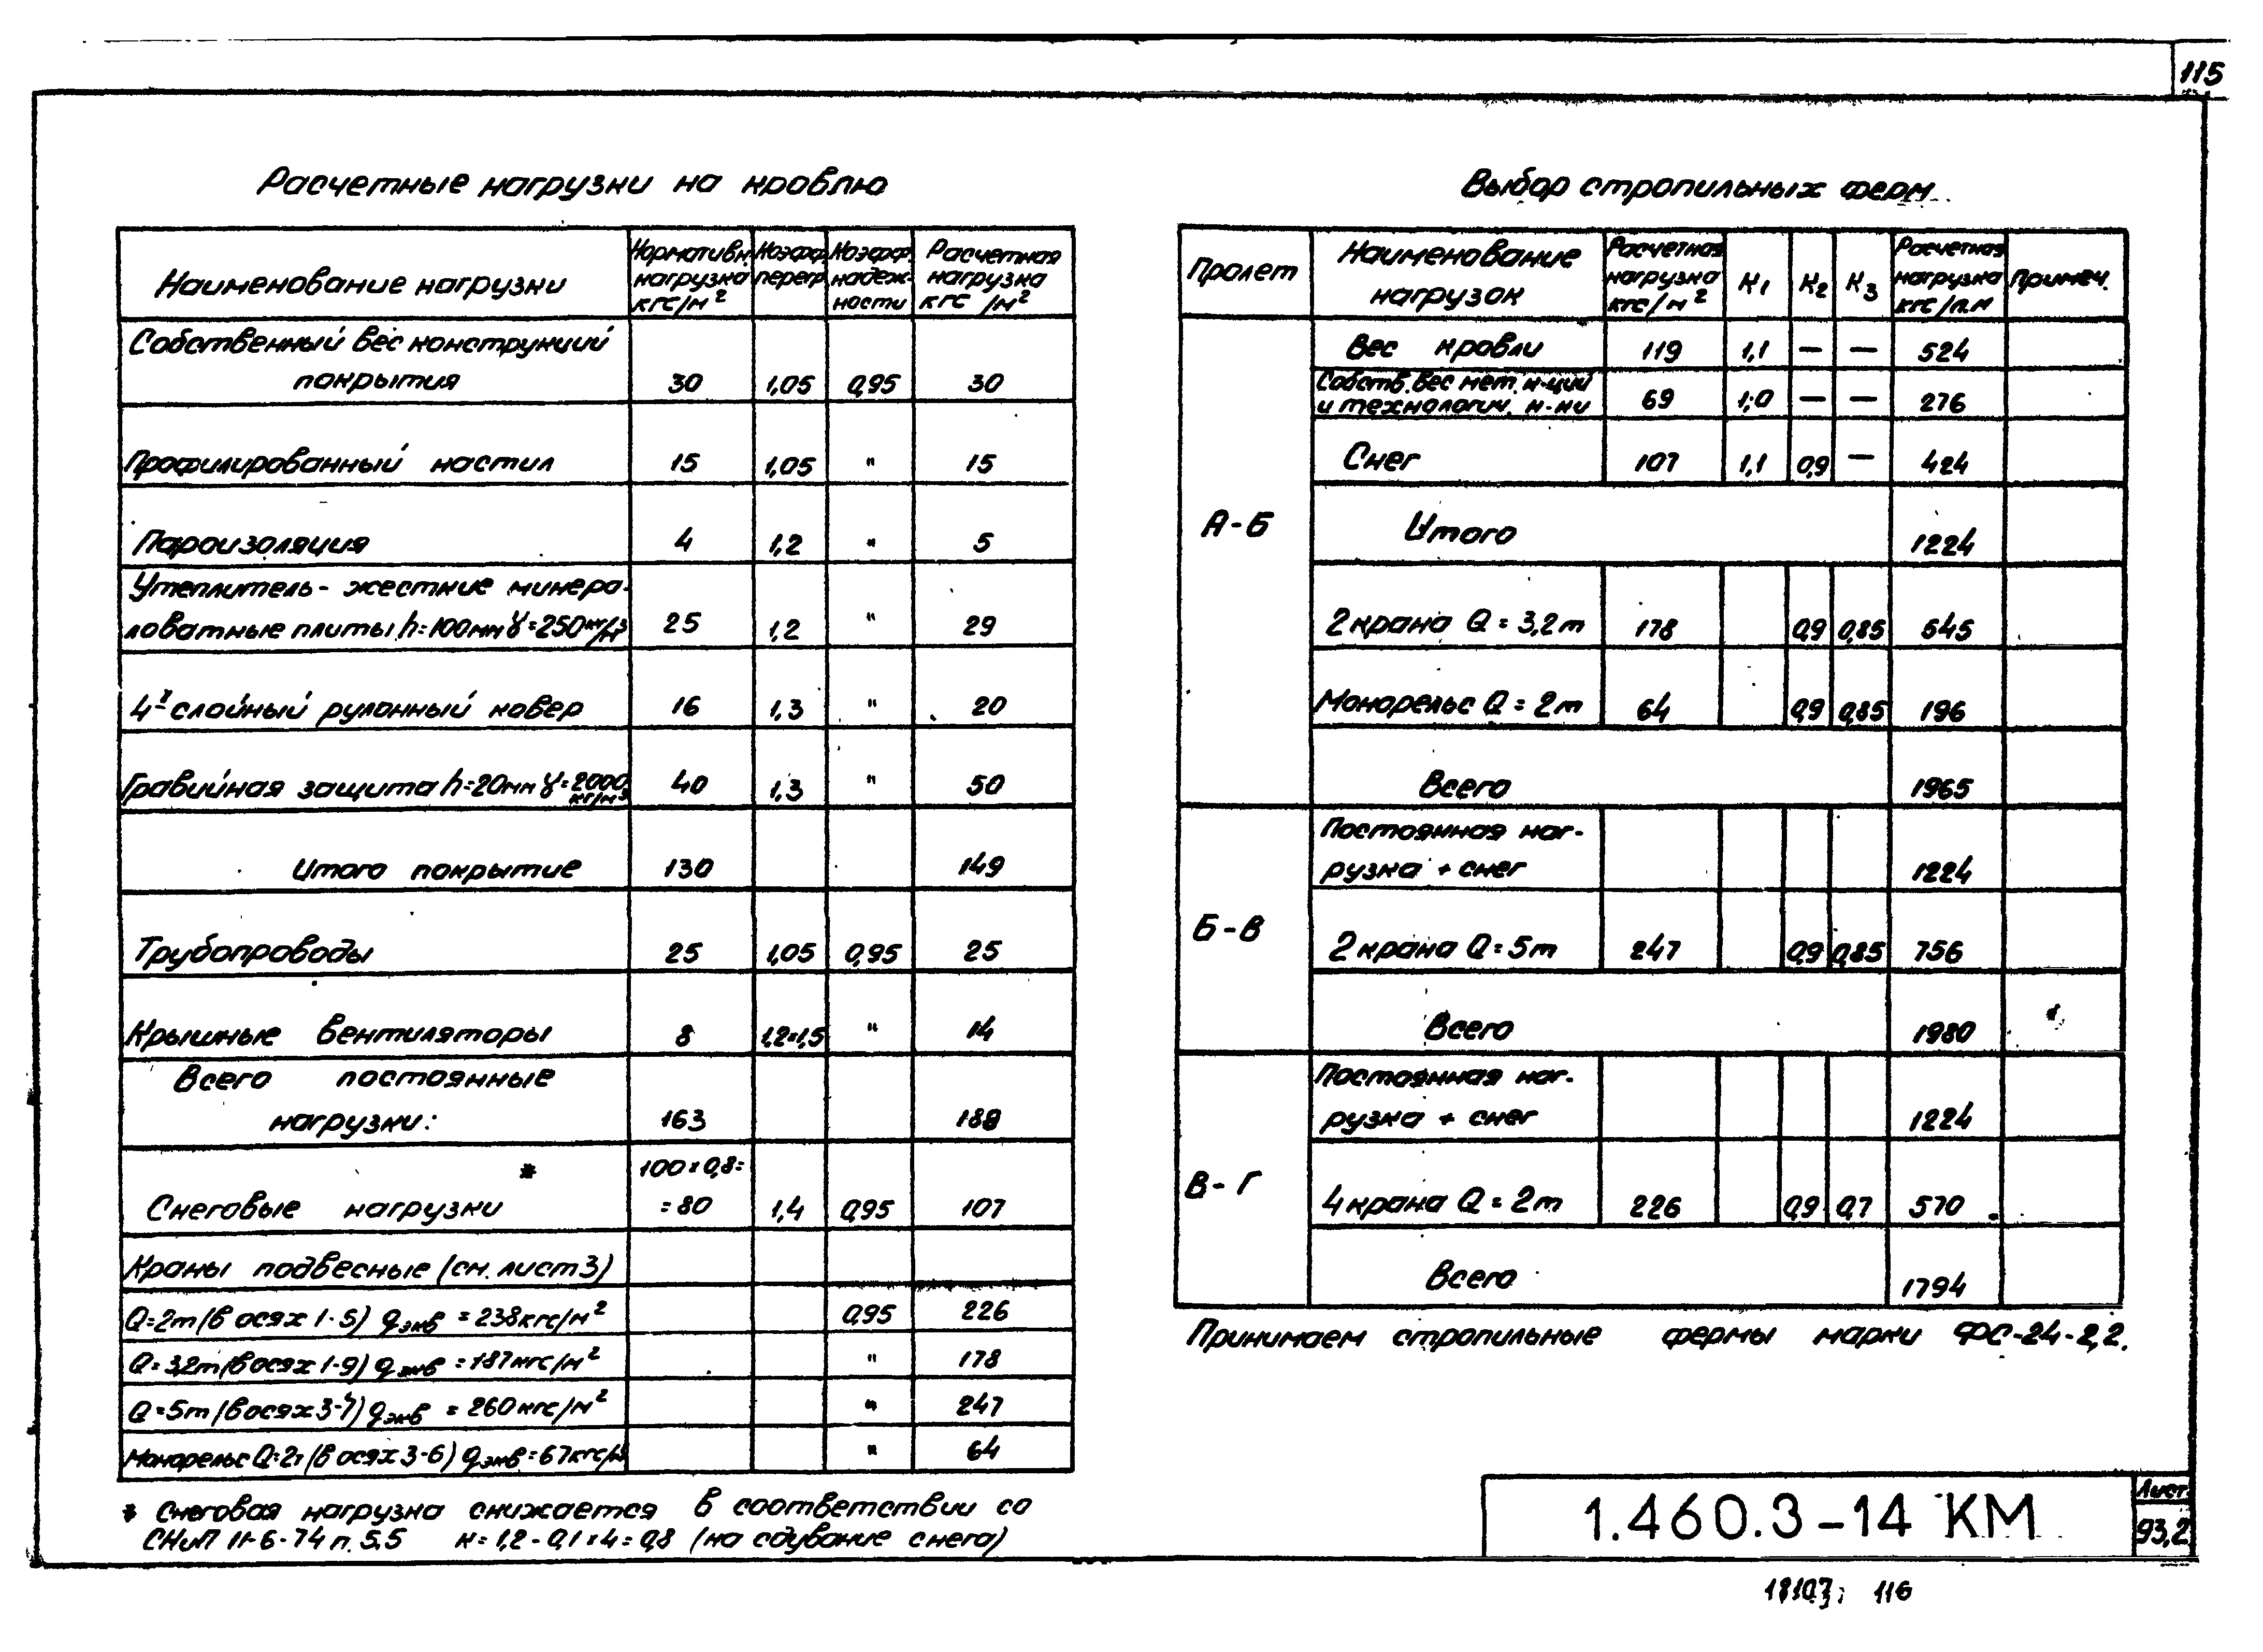 115
Расчетные нагрузки на кровлю
Наименование нагрузки | Нормативн. нагрузка кгс/м² | Коэфф. перегр. | Коэфф. надеж- ности | Расчетная нагрузка кгс /м²
Собственный вес конструкций
покрытия 30 1,05 0,95 30
Профилированный настил 15 1,05 " 15
Пароизоляция 4 1,2 " 5
Утеплитель - жесткие минера-
ловатные плиты h=100мм γ=250кг/м³ 25 1,2 " 29
4х слойный рулонный ковер 16 1,3 " 20
Гравийная защита h=20мм γ=2000 кг/м³ 40 1,3 " 50
Итого покрытие 130 149
Трубопроводы 25 1,05 0,95 25
Крышные вентиляторы 8 1,2×1,5 " 14
Всего постоянные
нагрузки: 163 188
Снеговые нагрузки * 100×0,8= =80 1,4 0,95 107
Краны подвесные (см. лист 3)
Q=2т (в осях 1-5) qэкв = 238кгс/м² 0,95 226
Q=3,2т (в осях 1-9) qэкв = 187кгс/м² " 178
Q=5т (в осях 3-7) qэкв = 260кгс/м² " 247
Монорельс Q=2т (в осях 3-6) qэкв = 67кгс/м² " 64
* Снеговая нагрузка снижается в соответствии со
СНиП II-6-74 п. 5.5 к = 1,2 - 0,1×4 = 0,8 (на сдувание снега)
Выбор стропильных ферм
Пролет | Наименование нагрузок | Расчетная нагрузка кгс/м² | К1 | К2 | К3 | Расчетная нагрузка кгс/п.м | Примеч.
А-Б
Вес кровли 119 1,1 — — 524
Собств. вес мет. к-ций
и технологич. к-ки 69 1,0 — — 276
Снег 107 1,1 0,9 — 424
Итого 1224
2 крана Q = 3,2т 178 0,9 0,85 545
Монорельс Q = 2т 64 0,9 0,85 196
Всего 1965
Б-В
Постоянная наг-
рузка + снег 1224
2 крана Q = 5т 247 0,9 0,85 756
Всего 1980
В-Г
Постоянная наг-
рузка + снег 1224
4 крана Q = 2т 226 0,9 0,7 570
Всего 1794
Принимаем стропильные фермы марки ФС-24-2,2.
1.460.3-14 КМ
Лист
93,2
18107 116